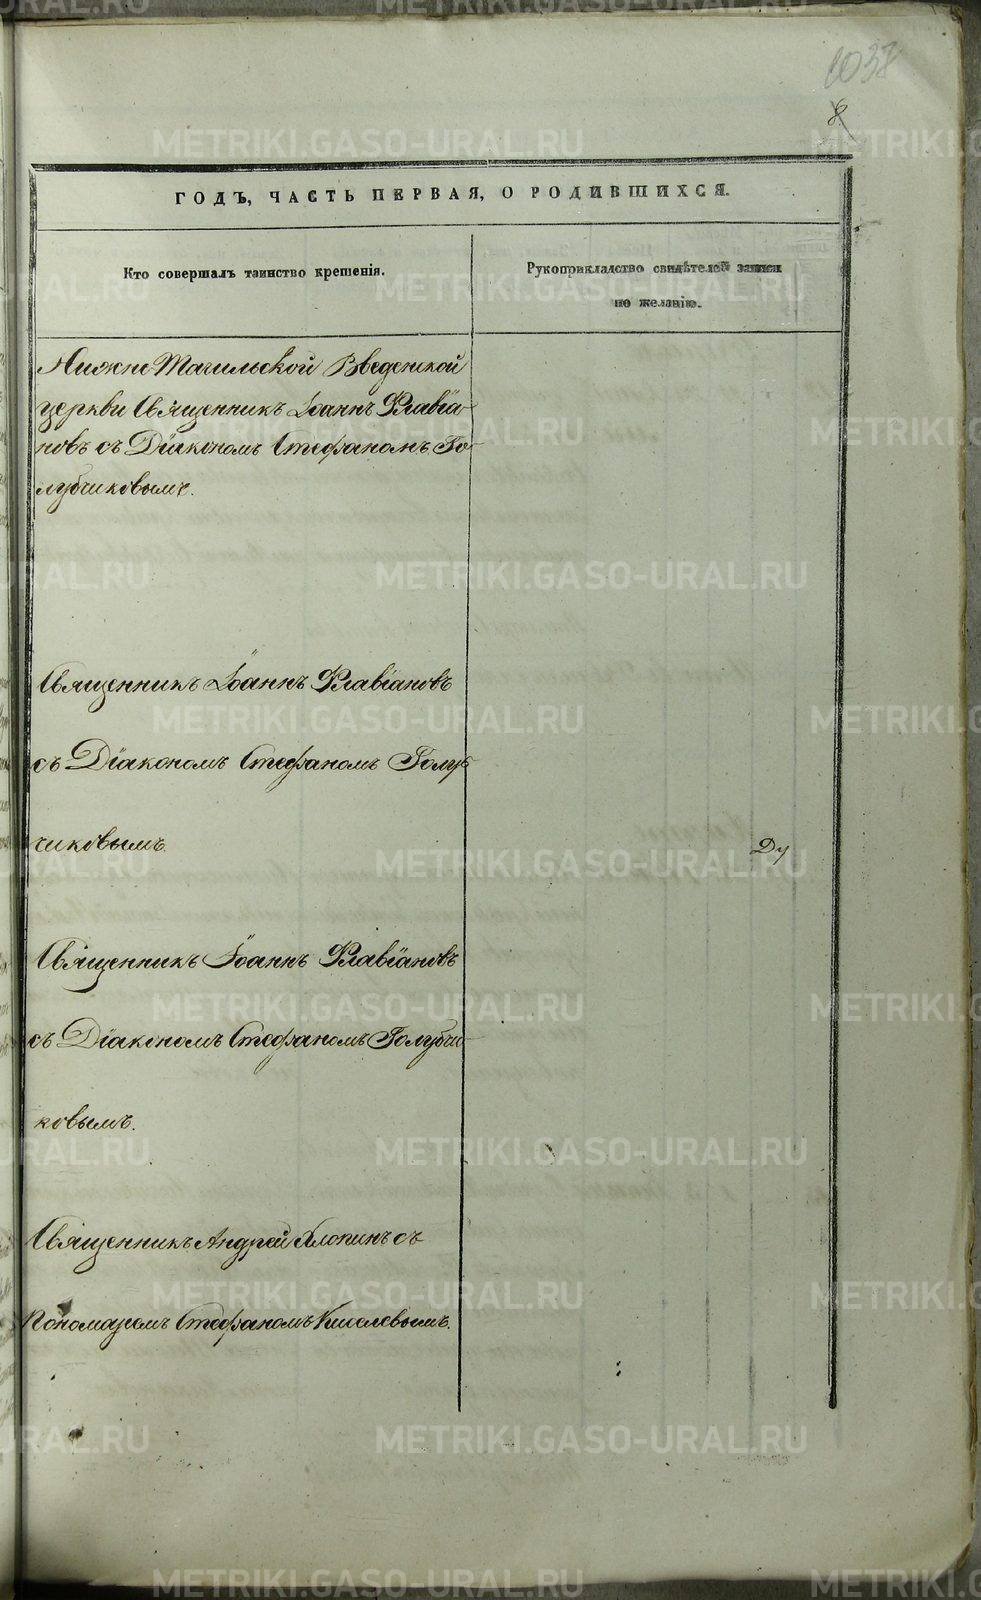 1037
8
ГОДЪ, ЧАСТЬ ПЕРВАЯ, О РОДИВШИХСЯ.
Кто совершалъ таинство крещенія.
Рукоприкладство свидѣтелей записи
по желанію.
Нижне Тагильской Введенской
церкви Священникъ Іоаннъ Флавіа-
новъ съ Діакономъ Стефаномъ Го-
лубчиковымъ.
Священникъ Іоаннъ Флавіановъ
съ Діакономъ Стефаномъ Голуб
чиковымъ
Ду
Священникъ Іоаннъ Флавіановъ
съ Діакономъ Стефаномъ Голубчи-
ковымъ.
Священникъ Андрей Хлопинъ съ
Пономаремъ Стефаномъ Киселевымъ.
METRIKI.GASO-URAL.RU